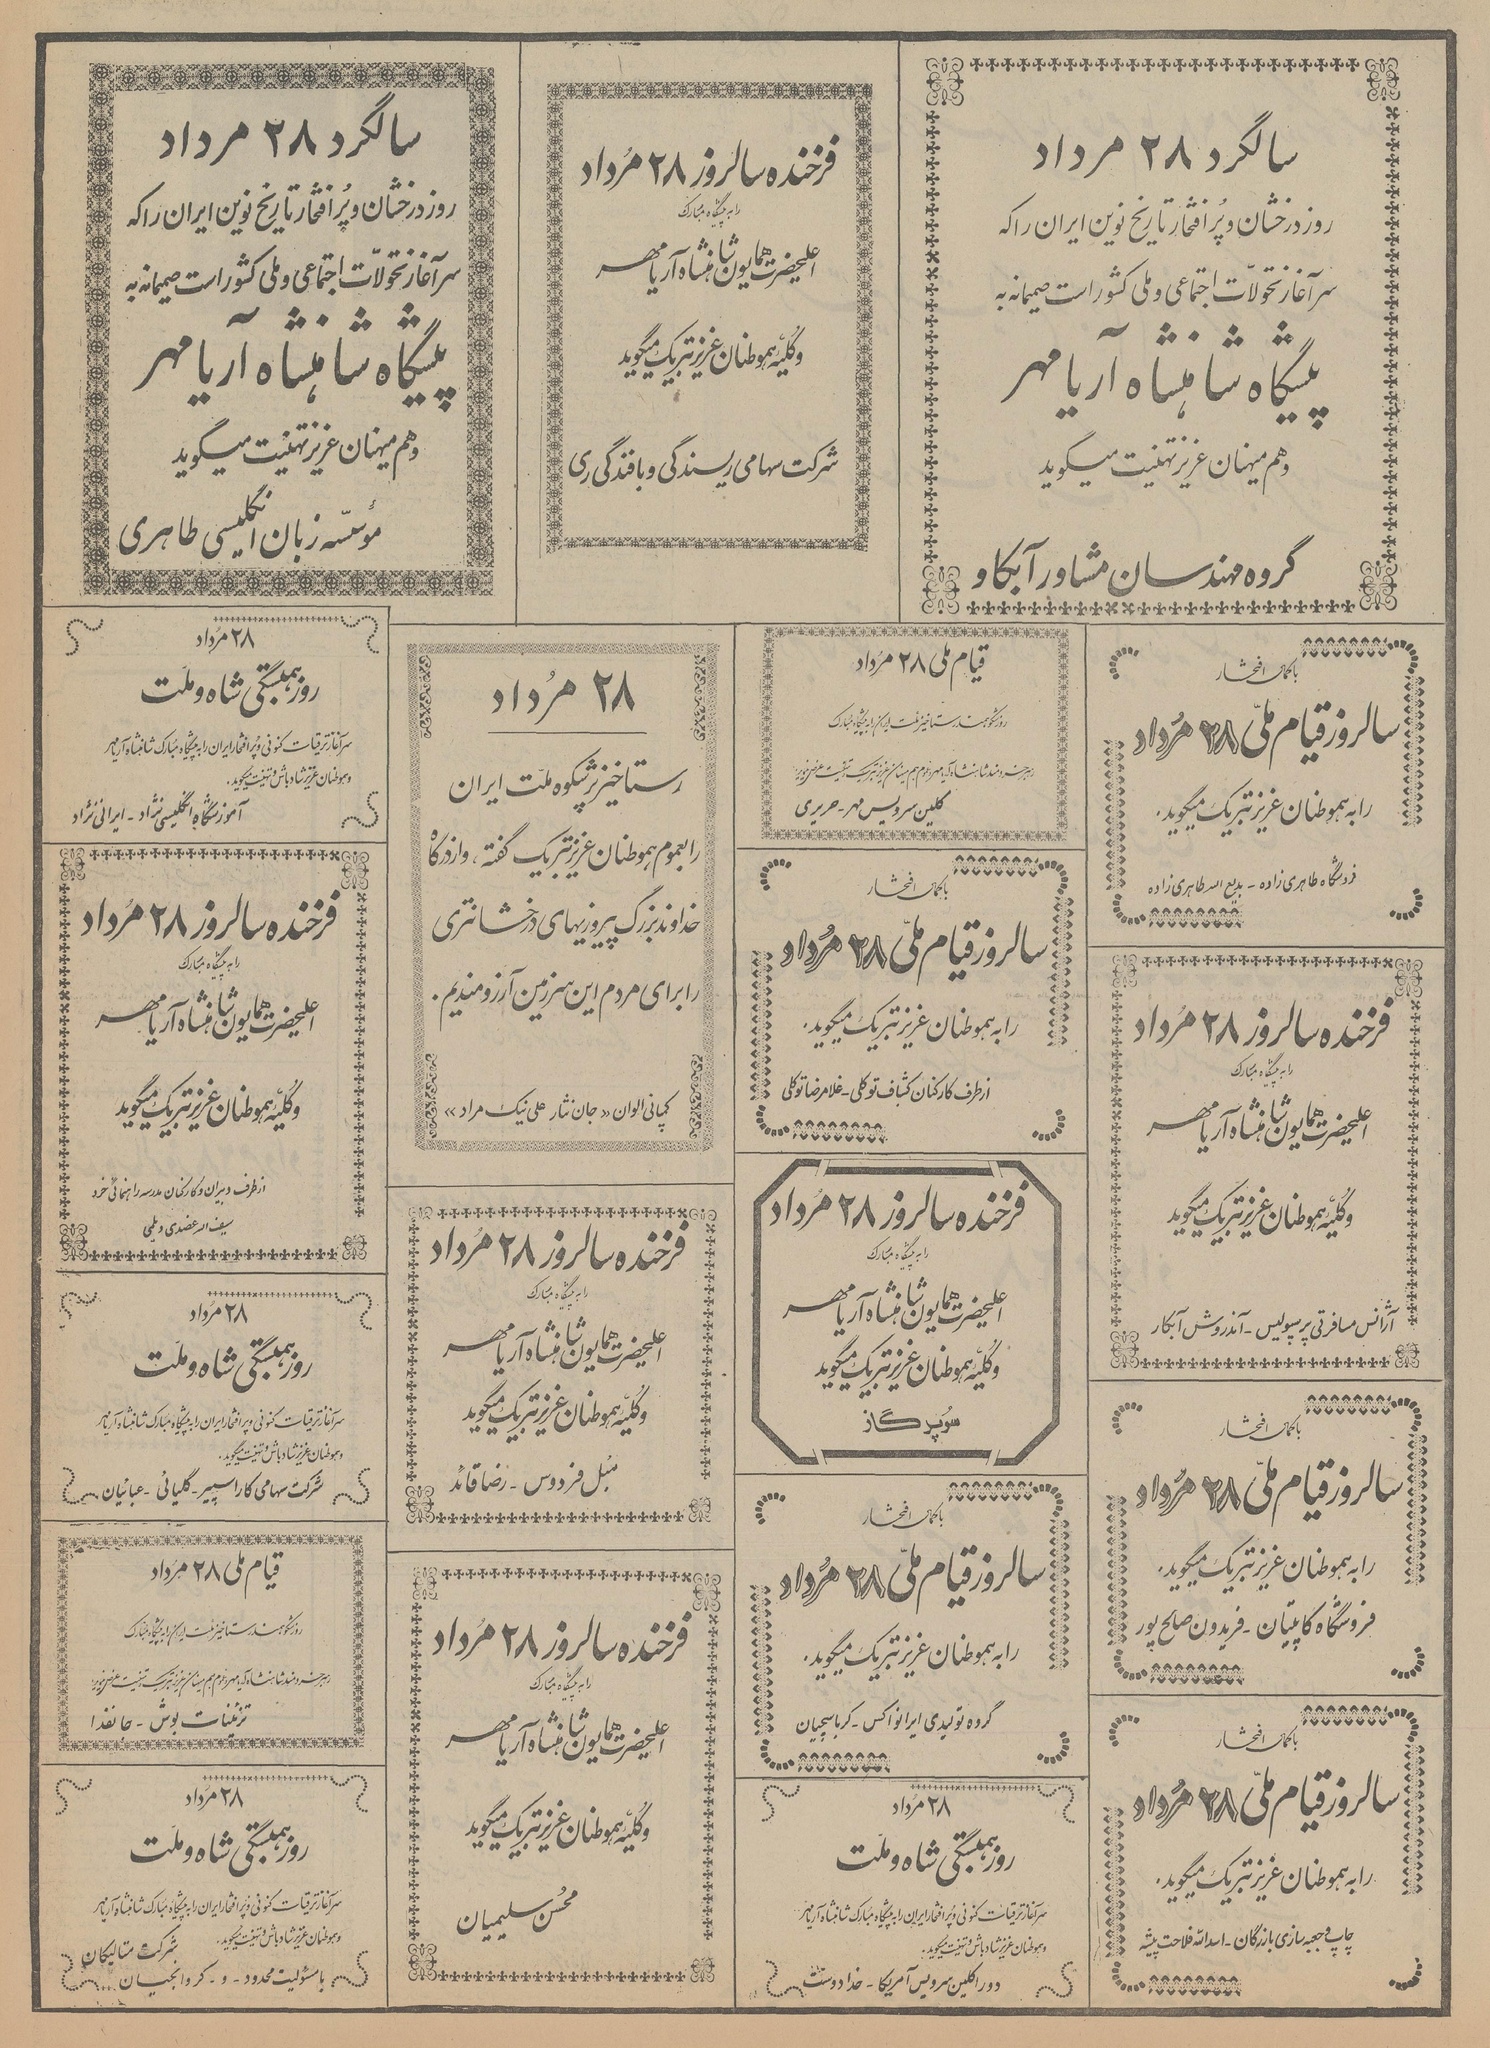 سالگرد ۲۸ مرداد
روز درخشان و پُر افتخار تاریخ نوین ایران را که
سرآغاز تحولّات اجتماعی و ملی کشور است صمیمانه به
پیشگاه شاهنشاه آریامهر
و هم میهنان عزیز تهنیت میگوید
گروه مهندسان مشاور آبکاو
فرخنده سالروز ۲۸ مُرداد
را به پیشگاه مبارک
اعلیحضرت همایون شاهنشاه آریامهر
و کلیّه هموطنان عزیز تبریک میگوید
شرکت سهامی ریسندگی و بافندگی ری
سالگرد ۲۸ مرداد
روز درخشان و پُر افتخار تاریخ نوین ایران را که
سرآغاز تحولّات اجتماعی و ملی کشور است صمیمانه به
پیشگاه شاهنشاه آریامهر
و هم میهنان عزیز تهنیت میگوید
مؤسّسه زبان انگلیسی طاهری
با کمال افتخار
سالروز قیام ملّی ۲۸ مُرداد
را به هموطنان عزیز تبریک میگوید.
فروشگاه طاهری زاده - بدیع اله طاهری زاده
فرخنده سالروز ۲۸ مُرداد
را به پیشگاه مبارک
اعلیحضرت همایون شاهنشاه آریامهر
و کلیّه هموطنان عزیز تبریک میگوید
آژانس مسافرتی پرسپولیس - آندروش آبکار
با کمال افتخار
سالروز قیام ملّی ۲۸ مُرداد
را به هموطنان عزیز تبریک میگوید.
فروشگاه کاپیتان - فریدون صالح پور
با کمال افتخار
سالروز قیام ملّی ۲۸ مُرداد
را به هموطنان عزیز تبریک میگوید.
چاپ و جعبه سازی بازرگان - اسدالله فلاحت پیشه
قیام ملی ۲۸ مُرداد
روز شکوهمند رستاخیز ملت ایران را به پیشگاه مبارک
رهبر خردمند شاهنشاه آریامهر و عموم هم میهنان عزیز تبریک و تهنیت
کلین سرویس مهر - حریری
با کمال افتخار
سالروز قیام ملّی ۲۸ مُرداد
را به هموطنان عزیز تبریک میگوید.
از طرف کارکنان کشباف توکلی - غلامرضا توکلی
فرخنده سالروز ۲۸ مُرداد
را به پیشگاه مبارک
اعلیحضرت همایون شاهنشاه آریامهر
و کلیّه هموطنان عزیز تبریک میگوید
سوپر گاز
با کمال افتخار
سالروز قیام ملّی ۲۸ مُرداد
را به هموطنان عزیز تبریک میگوید.
گروه تولیدی ایرانواکس - کرباسچیان
۲۸ مُرداد
روز همبستگی شاه و ملّت
سرآغاز ترقیات کنونی و پر افتخار ایران را به پیشگاه مبارک شاهنشاه آریامهر
و هموطنان عزیز شادباش و تهنیت میگوید.
دورا کلین سرویس آمریکا - خدادوست
۲۸ مُرداد
رستاخیز پُرشکوه ملّت ایران
را بعموم هموطنان عزیز تبریک گفته، و از درگاه
خداوند بزرگ پیروزیهای درخشانتری
را برای مردم این سرزمین آرزومندیم.
کمپانی الوان «جان نثار علی نیک مراد»
فرخنده سالروز ۲۸ مُرداد
را به پیشگاه مبارک
اعلیحضرت همایون شاهنشاه آریامهر
و کلیّه هموطنان عزیز تبریک میگوید
مُبل فردوس - رضا قائد
فرخنده سالروز ۲۸ مُرداد
را به پیشگاه مبارک
اعلیحضرت همایون شاهنشاه آریامهر
و کلیّه هموطنان عزیز تبریک میگوید
محسن سلیمیان
۲۸ مُرداد
روز همبستگی شاه و ملّت
سرآغاز ترقیات کنونی و پر افتخار ایران را به پیشگاه مبارک شاهنشاه آریامهر
و هموطنان عزیز شادباش و تهنیت میگوید.
آموزشگاه انگلیسی نژاد - ایرانی نژاد
فرخنده سالروز ۲۸ مُرداد
را به پیشگاه مبارک
اعلیحضرت همایون شاهنشاه آریامهر
و کلیّه هموطنان عزیز تبریک میگوید
از طرف دبیران و کارکنان مدرسه راهنمائی خرد
سیف اله عضدی دیلمی
۲۸ مُرداد
روز همبستگی شاه و ملّت
سرآغاز ترقیات کنونی و پر افتخار ایران را به پیشگاه مبارک شاهنشاه آریامهر
و هموطنان عزیز شادباش و تهنیت میگوید.
شرکت سهامی کاراسپیر - گلپائی - عبائیان
قیام ملی ۲۸ مُرداد
روز شکوهمند رستاخیز ملت ایران را به پیشگاه مبارک
رهبر خردمند شاهنشاه آریامهر و عموم هم میهنان عزیز تبریک و تهنیت
تزئینات بوش - جانفدا
۲۸ مُرداد
روز همبستگی شاه و ملّت
سرآغاز ترقیات کنونی و پر افتخار ایران را به پیشگاه مبارک شاهنشاه آریامهر
و هموطنان عزیز شادباش و تهنیت میگوید.
شرکت متالیکان
با مسئولیت محدود - و - کروانجیان